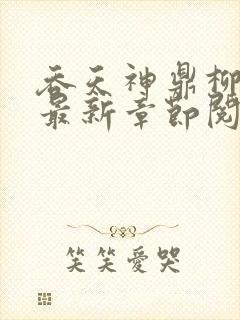 吞天神鼎柳
最新章节阅
笑笑爱哭